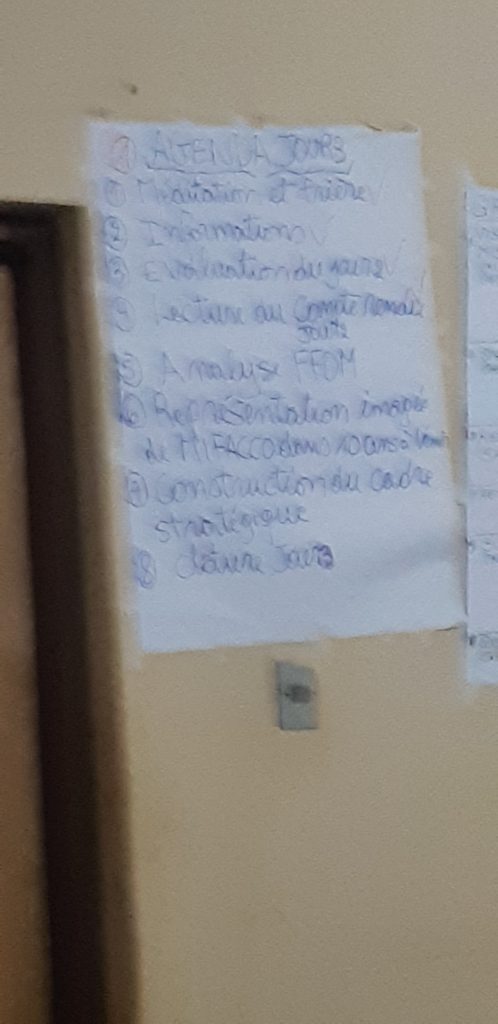 AGENDA JOUR3
① Méditation et Prière ✓
② Informations ✓
③ Evaluation du jour2 ✓
④ Lecture du Compte rendu
Jour2
⑤ Analyse FFOM
⑥ Représentation imagée
de MIFACCO dans 10 ans à venir
⑦ Construction du cadre
stratégique
⑧ Clôture Jour3